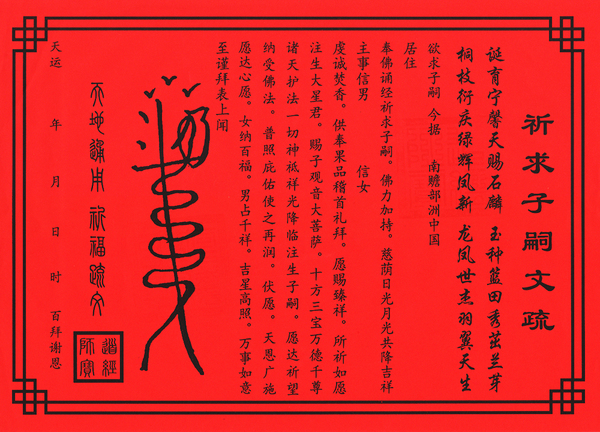 祈求子嗣文疏
诞育宁馨天赐石麟 玉种篮田秀茁兰芽
桐枝衍庆绿辉凤新 龙凤世杰羽翼天生
欲求子嗣 今据 南瞻部洲中国
居住
奉佛诵经祈求子嗣。佛力加持。慈荫日光月光共降吉祥
主事信男 信女
虔诚焚香。供奉果品稽首礼拜。愿赐臻祥。所祈如愿
注生大星君。赐子观音大菩萨。十方三宝万德千尊
诸天护法一切神祗祥光降临注生子嗣。愿达祈望
纳受佛法。普照庇佑使之再润。伏愿。天恩广施
愿达心愿。女纳百福。男占千祥。吉星高照。万事如意
至谨拜表上闻
天地通用 祈福疏文
道经师宝
天运 年 月 日 时 百拜谢恩